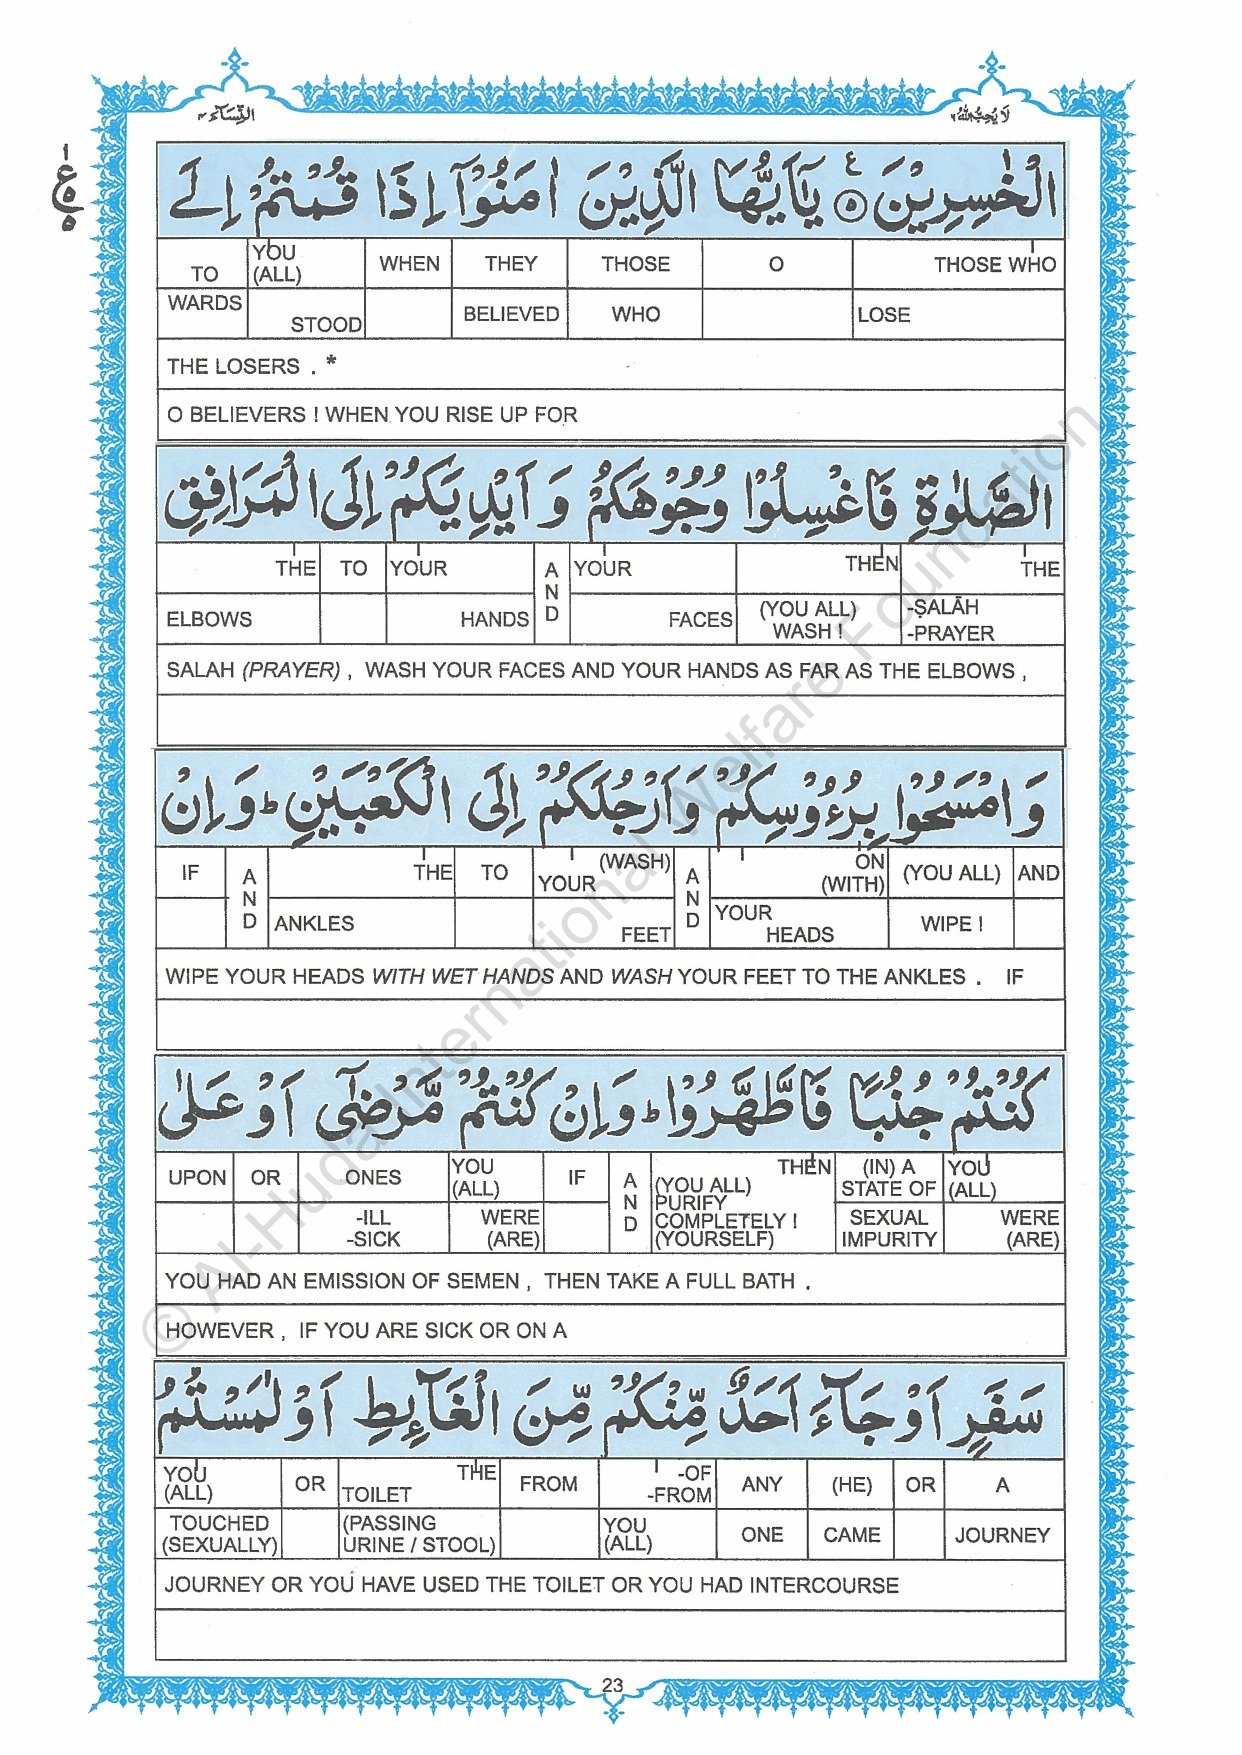 النساء ٤
لا يحب الله ٦
١
ع
٥
٥
الْخٰسِرِيْنَ ۝٥ يٰۤاَيُّهَا الَّذِيْنَ اٰمَنُوْۤا اِذَا قُمْتُمْ اِلَى
TO YOU (ALL) WHEN THEY THOSE O THOSE WHO
WARDS STOOD BELIEVED WHO LOSE
THE LOSERS . *
O BELIEVERS ! WHEN YOU RISE UP FOR
الصَّلٰوةِ فَاغْسِلُوْا وُجُوْهَكُمْ وَ اَيْدِيَكُمْ اِلَى الْمَرَافِقِ
THE TO YOUR AND YOUR THEN THE
ELBOWS HANDS FACES (YOU ALL) WASH ! -ṢALĀH -PRAYER
SALAH (PRAYER) , WASH YOUR FACES AND YOUR HANDS AS FAR AS THE ELBOWS ,
وَ امْسَحُوْا بِرُءُوْسِكُمْ وَ اَرْجُلَكُمْ اِلَى الْكَعْبَيْنِ ؕ وَ اِنْ
IF AND THE TO (WASH) YOUR AND ON (WITH) (YOU ALL) AND
ANKLES FEET YOUR HEADS WIPE !
WIPE YOUR HEADS WITH WET HANDS AND WASH YOUR FEET TO THE ANKLES . IF
كُنْتُمْ جُنُبًا فَاطَّهَّرُوْا ؕ وَ اِنْ كُنْتُمْ مَّرْضٰۤى اَوْ عَلٰى
UPON OR ONES YOU (ALL) IF AND THEN (YOU ALL) PURIFY COMPLETELY ! (YOURSELF) (IN) A STATE OF YOU (ALL)
-ILL -SICK WERE (ARE) SEXUAL IMPURITY WERE (ARE)
YOU HAD AN EMISSION OF SEMEN , THEN TAKE A FULL BATH .
HOWEVER , IF YOU ARE SICK OR ON A
سَفَرٍ اَوْ جَآءَ اَحَدٌ مِّنْكُمْ مِّنَ الْغَآئِطِ اَوْ لٰمَسْتُمُ
YOU (ALL) OR THE TOILET FROM -OF -FROM ANY (HE) OR A
TOUCHED (SEXUALLY) (PASSING URINE / STOOL) YOU (ALL) ONE CAME JOURNEY
JOURNEY OR YOU HAVE USED THE TOILET OR YOU HAD INTERCOURSE
23
© Al-Huda International Welfare Foundation